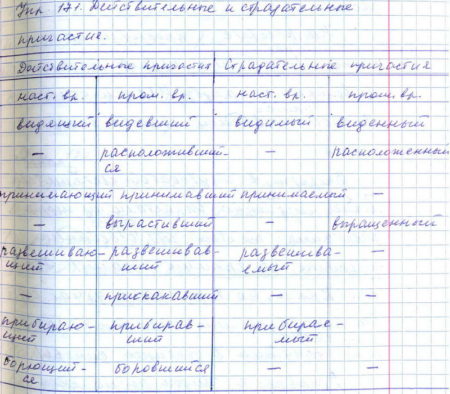 Упр. 171. Действительные и страдательные
причастия.
Действительные причастия Страдательные причастия
наст. вр. прош. вр. наст. вр. прош. вр.
видящий видевший видимый виденный
— расположивший- — расположенный
ся
принимающий принимавший принимаемый —
— вырастивший — выращенный
развешиваю- развешивав- развешива- —
щий ший емый
— прискакавший — —
прибираю- прибирав- прибирае-
щий ший мый
борющий- боровшийся — —
ся